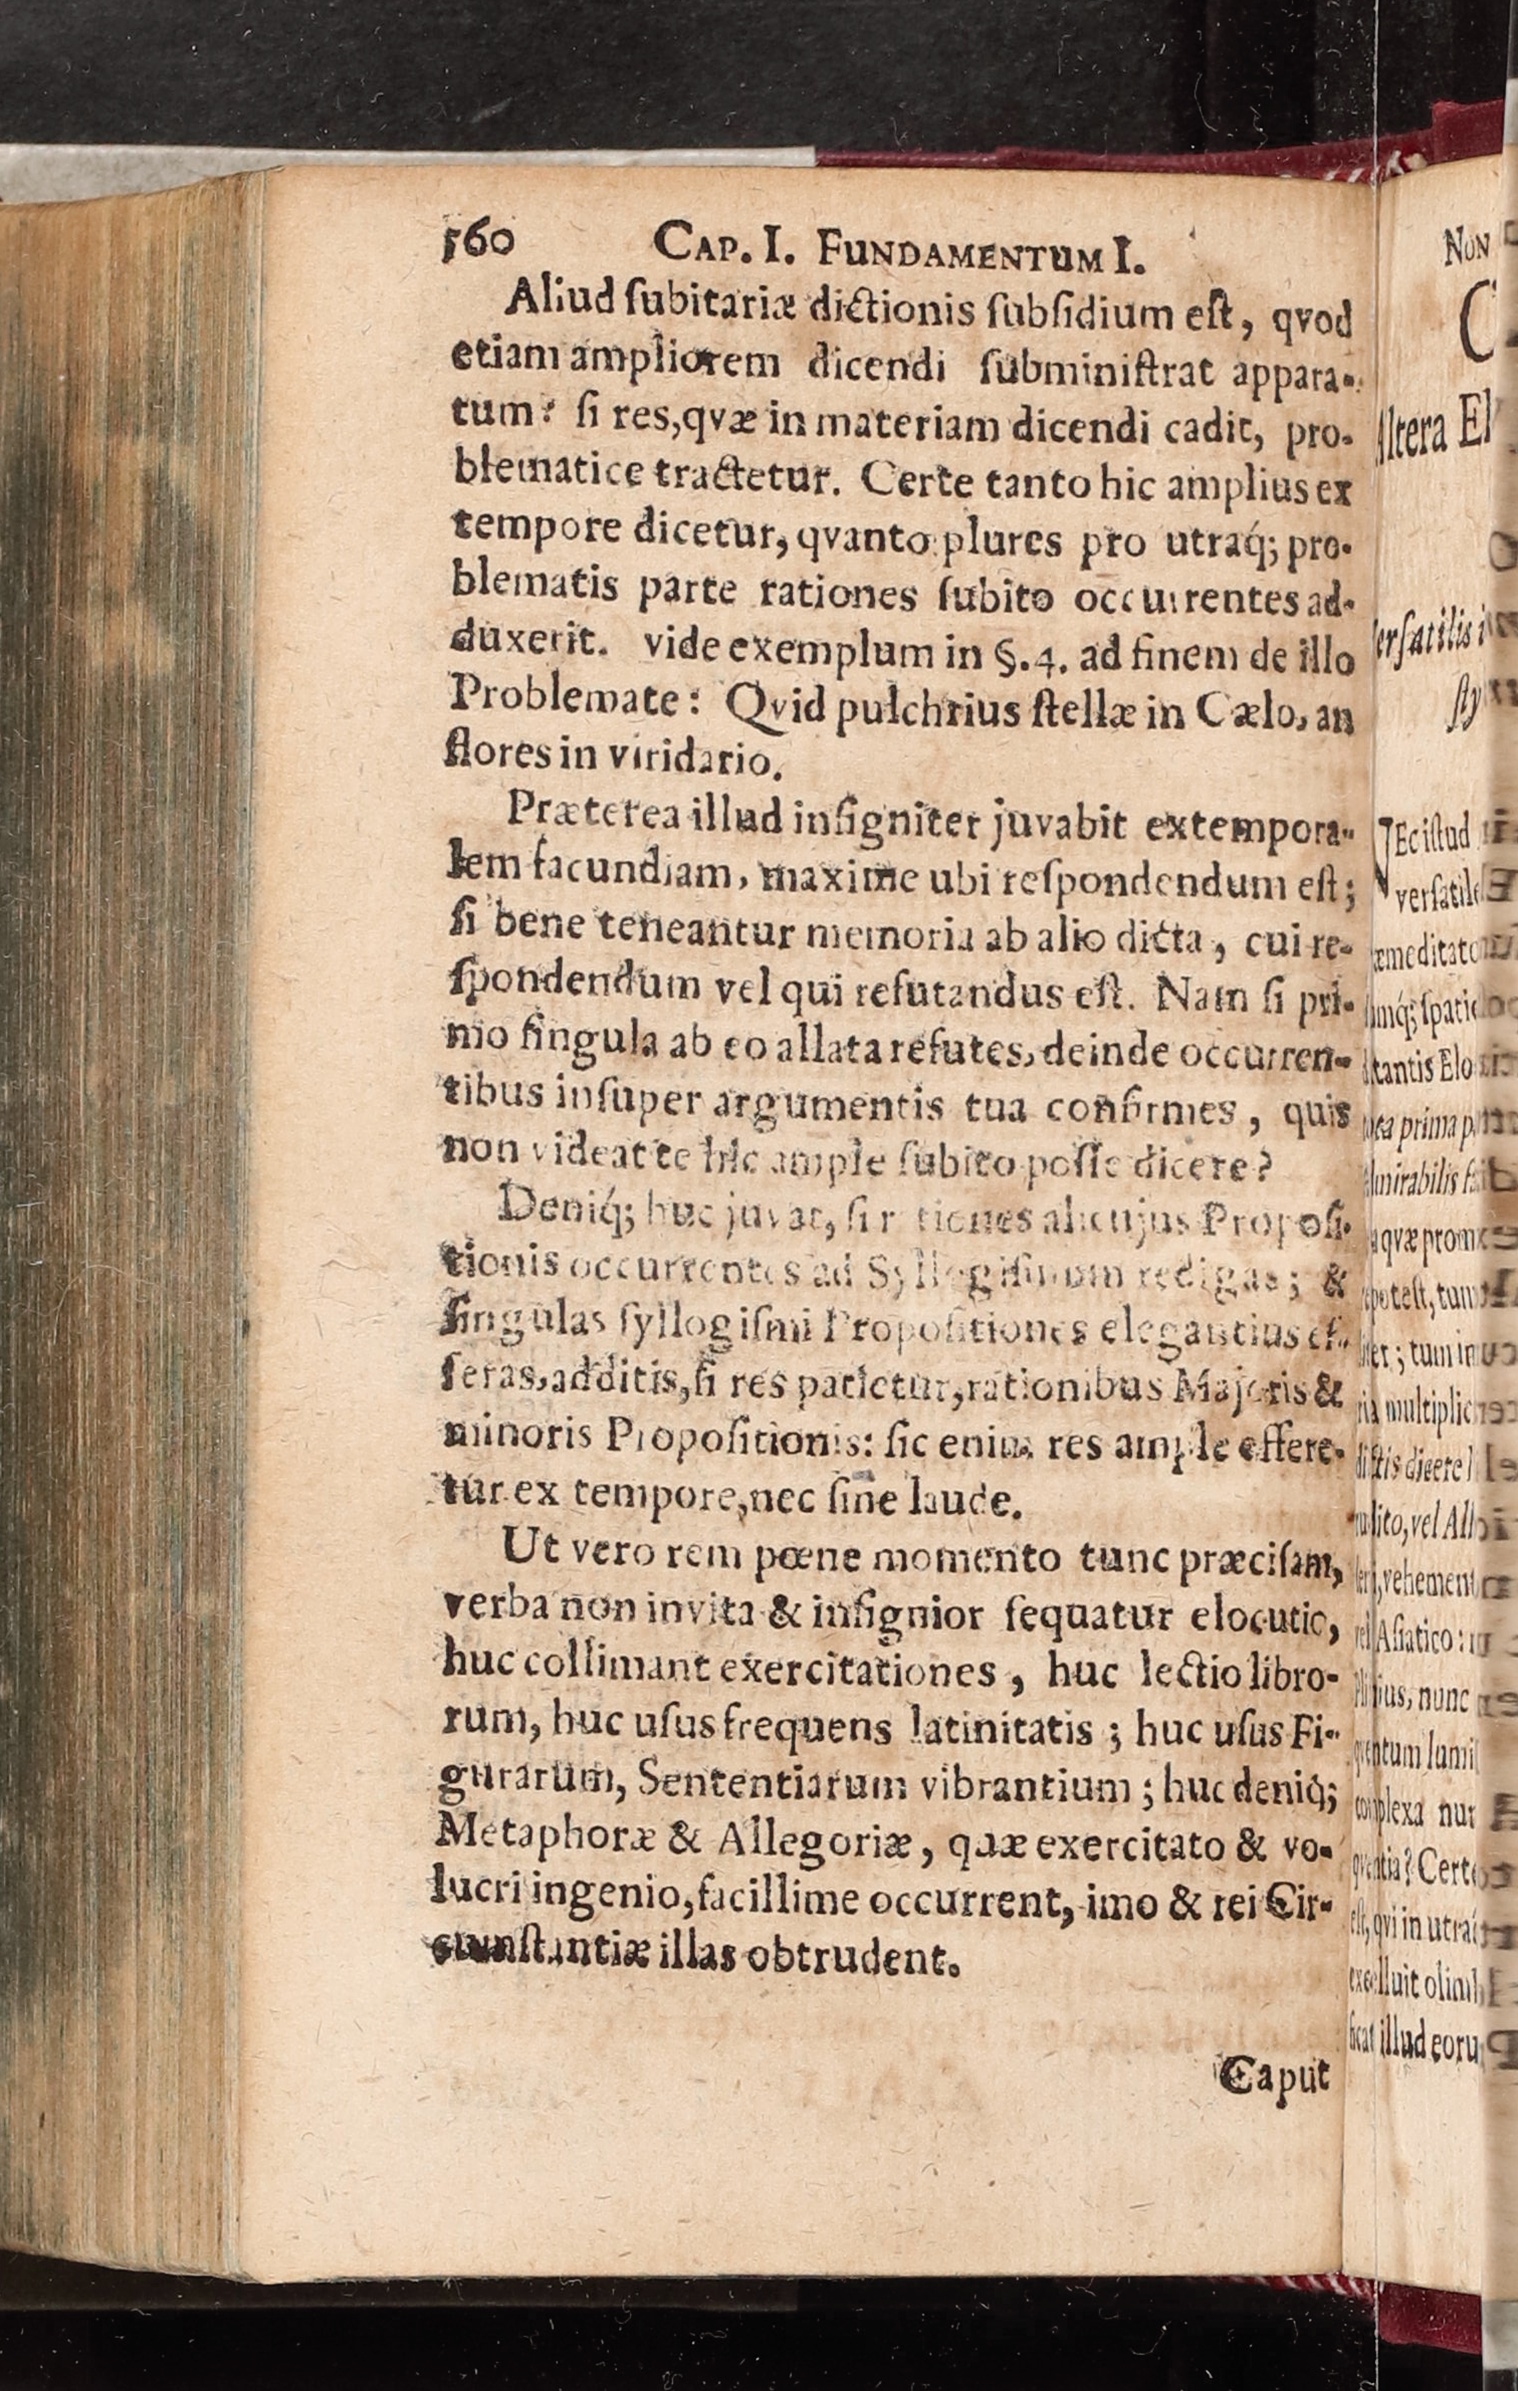 560 CAP. I. FUNDAMENTUM I.
Aliud ſubitariæ dictionis ſubſidium eſt, qvod
etiam ampliorem dicendi ſubminiſtrat appara-
tum: ſi res, qvæ in materiam dicendi cadit, pro-
blematice tractetur. Certe tanto hic amplius ex
tempore dicetur, qvanto plures pro utraq́; pro-
blematis parte rationes ſubito occurrentes ad-
duxerit. vide exemplum in §. 4. ad finem de illo
Problemate: Qvid pulchrius ſtellæ in Cælo, an
flores in viridario.
Præterea illud inſigniter juvabit extempora-
lem facundiam, maxime ubi reſpondendum eſt;
ſi bene teneantur memoria ab alio dicta, cui re-
ſpondendum vel qui refutandus eſt. Nam ſi pri-
mo ſingula ab eo allata refutes, deinde occurren-
tibus inſuper argumentis tua confirmes, quis
non videat te hic ample ſubito poſſe dicere?
Deniq́; huc juvat, ſi rationes alicujus Propoſi-
tionis occurrentes ad Syllogiſmum redigas; &
ſingulas ſyllogiſmi Propoſitiones elegantius ef-
feras, additis, ſi res patietur, rationibus Majoris &
minoris Propoſitionis: ſic enim res ample effere-
tur ex tempore, nec ſine laude.
Ut vero rem pœne momento tunc præciſam,
verba non invita & inſignior ſequatur elocutio,
huc collimant exercitationes, huc lectio libro-
rum, huc uſus frequens latinitatis; huc uſus Fi-
gurarum, Sententiarum vibrantium; huc deniq́;
Metaphoræ & Allegoriæ, quæ exercitato & vo-
lucri ingenio, facillime occurrent, imo & rei Cir-
cumſtantiæ illas obtrudent.
Caput
NON
Altera El
verſatilis i
ſty
NEc iſtud
verſatile
æmeditato
umq́; ſpatio
tantis Elo
ea prima p
mirabilis
qvæ prom
poteſt, tum
; tum in
multiplic
dicere
vel
vehement
Aſiatico:
nunc
lumi
complexa nun
Certe
eſt, qvi in utra
excelluit olim
ficat illud eoru